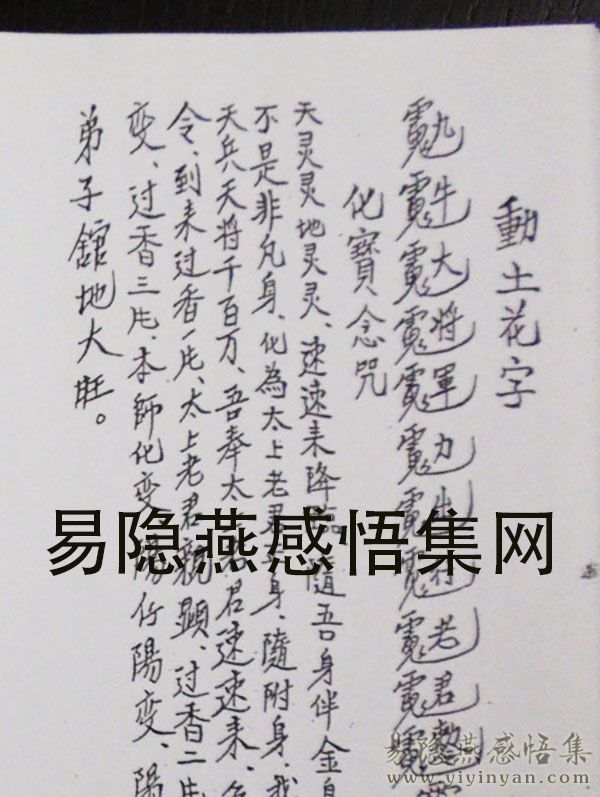 動土花字
九牛大將軍力老君
化寶念咒
天灵灵地灵灵、速速来降隨吾身伴金身
不是非凡身、化為太上老君身、隨附身、我
天兵天将千百万、吾奉太君速速来、
令、到来过香一片、太上老君親顯、过香二片
变、过香三片、本師化变陽变、陽
弟子舘地大旺。
易隐燕感悟集网
易隐燕感悟集
www.yiyinyan.com